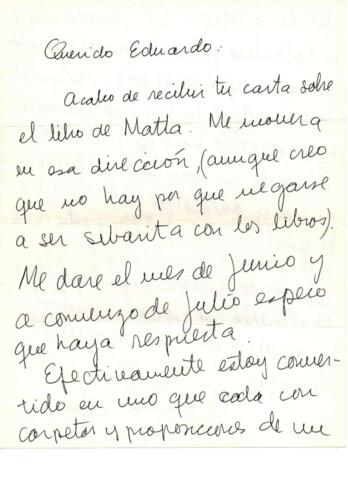 Querido Eduardo:
Acabo de recibir tu carta sobre
el libro de Matta. Me moveré
en esa dirección, (aunque creo
que no hay por que negarse
a ser sibarita con los libros).
Me daré el mes de Junio y
a comienzo de Julio espero
que haya respuesta.
Efectivamente estoy conver-
tido en uno que cada con
carpetas y proposiciones de un